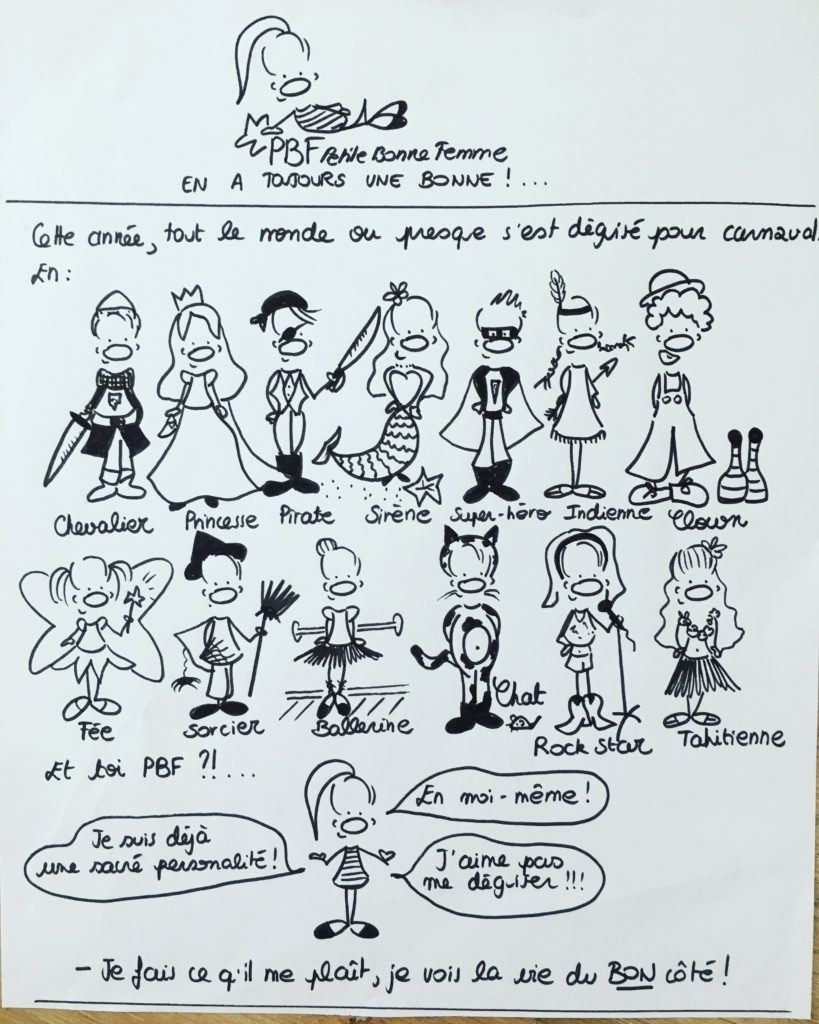 PBF Petite Bonne Femme
EN A TOUJOURS UNE BONNE !...
Cette année, tout le monde ou presque s'est dégisé pour carnaval.
En :
Chevalier Princesse Pirate Sirène Super-héro Indienne Clown
Fée Sorcier Ballerine Chat Rock Star Tahitienne
Et toi PBF ?!....
En moi-même !
Je suis déjà
une sacré personalité !
J'aime pas
me dégiser !!!
- Je fais ce q'il me plaît, je vois la vie du BON côté !